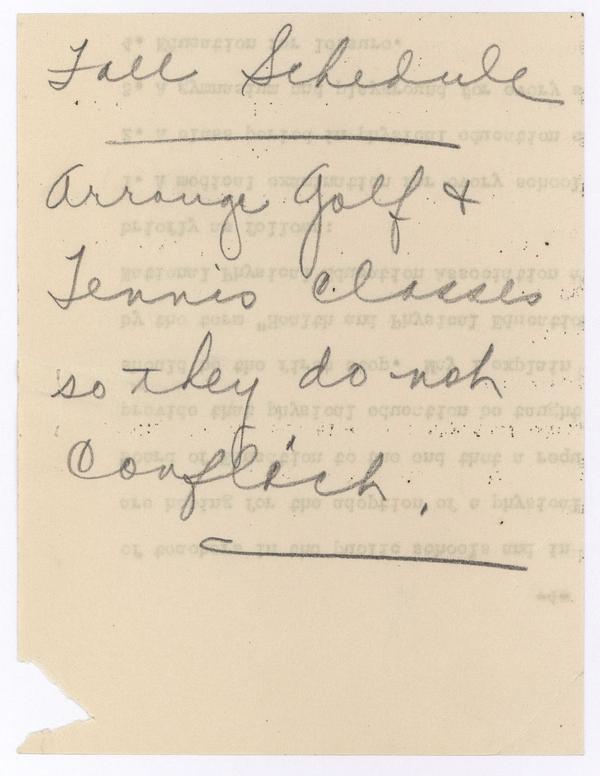 Fall Schedule
Arrange Golf &
Tennis Classes
so they do not
Conflict.